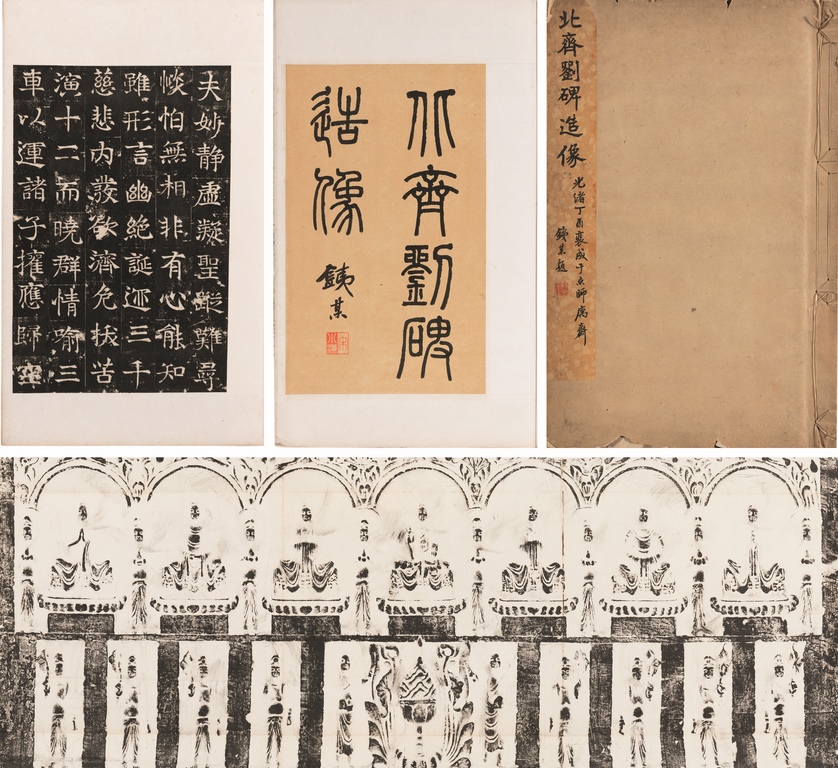 夫妙静虚凝聖蹤難尋
惔怕無相非有心能知
雖形言幽絶誕迹三千
慈悲内發欲濟危拔苦
演十二而曉群情喻三
車以運諸子擁應歸空
北齊劉碑
造像
銕某
北齊劉碑造像
光緒丁酉裝成于京師寓齋
銕某題